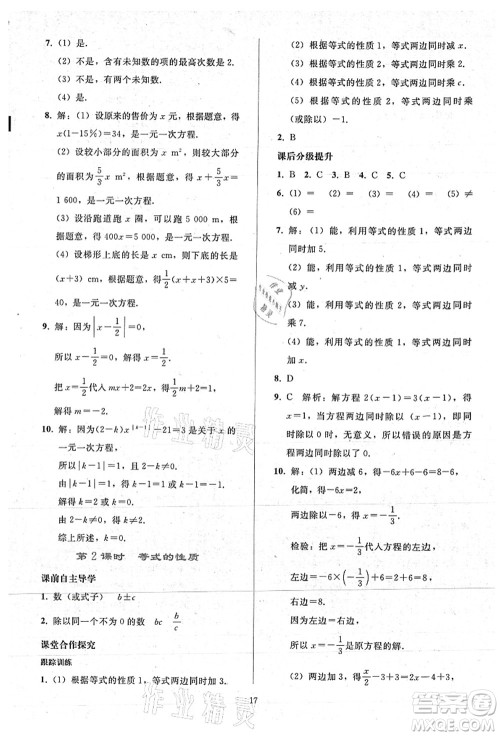 7. (1) 是.
(2) 不是,含有未知数的项的最高次数是 2.
(3) 不是,有两个未知数.
(4) 是.
8. 解:(1) 设原来的售价为 x 元,根据题意,得
x(1-15%)=34,是一元一次方程.
(2) 设较小部分的面积为 x m²,则较大部分
的面积为 5/3 x m². 根据题意,得 x+5/3 x=
1 600,是一元一次方程.
(3) 设沿跑道跑 x 圈,共跑了 5 000 m,根据
题意,得 400x=5 000,是一元一次方程.
(4) 设梯形上底的长是 x cm,根据题意,得
(x+x+3)×1/2×5=
40,是一元一次方程.
9. 解:因为|x-1/2|=0,
所以 x-1/2=0,即 x=1/2.
把 x=1/2代入方程 mx=3-x,
解得 m=
10. 解:因为(2-k)x^|k-1|-21=3是关于 x 的
一元一次方程,
所以|k-1|=1且2-k≠0.
由|k-1|=1,得 k=2或 k=0.
由 2-k≠0,得 k≠2.
综上所述,k=0.
第 2 课时 等式的性质
课前自主导学
1. 数(或式子) b±c
2. 除以同一个不为 0 的数 bc b/c
课堂合作探究
跟踪训练
1. (1) 根据等式的性质 1,等式两边同时加 3.
(2) 根据等式的性质 1,等式两边同时减 x.
(3) 根据等式的性质 2,等式两边同时乘 c.
(4) 根据等式的性质 2,等式两边同时乘
(或除以)-1.
2. B
课后分级提升
1. B 2. C 3. B 4. C 5. C
6. (1) = (2) = (3) = (4) =
7. 解:(1) 能,利用等式的性质 1,等式两边同
时加 5.
(2) 能,利用等式的性质 1,等式两边同时
减 y.
(3) 能,利用等式的性质 2,等式两边同时
乘 7.
(4) 能,利用等式的性质 2,等式两边同时
除以
8. D
9. C 解析:解方程 2(x-1)=3(x-1)
时,方程两边同时除以(x-1),而当 x-1=
0时,无意义,所以错误的原因是方程两边
同时除以了 0.
10. 解:(1) 两边减 6,得-6x+6-6=8-6,
化简,得-6x=2,
两边同时除以-6,得 x=-1/3.
检验:把 x=-1/3代入方程的左边,
左边=-6×(-1/3)+6=8,
右边=8.
因为左边=右边,
所以 x=-1/3是原方程的解.
(2) 两边加 3,得 x/2-3+3=6+3,
17
作业精灵
作业精灵